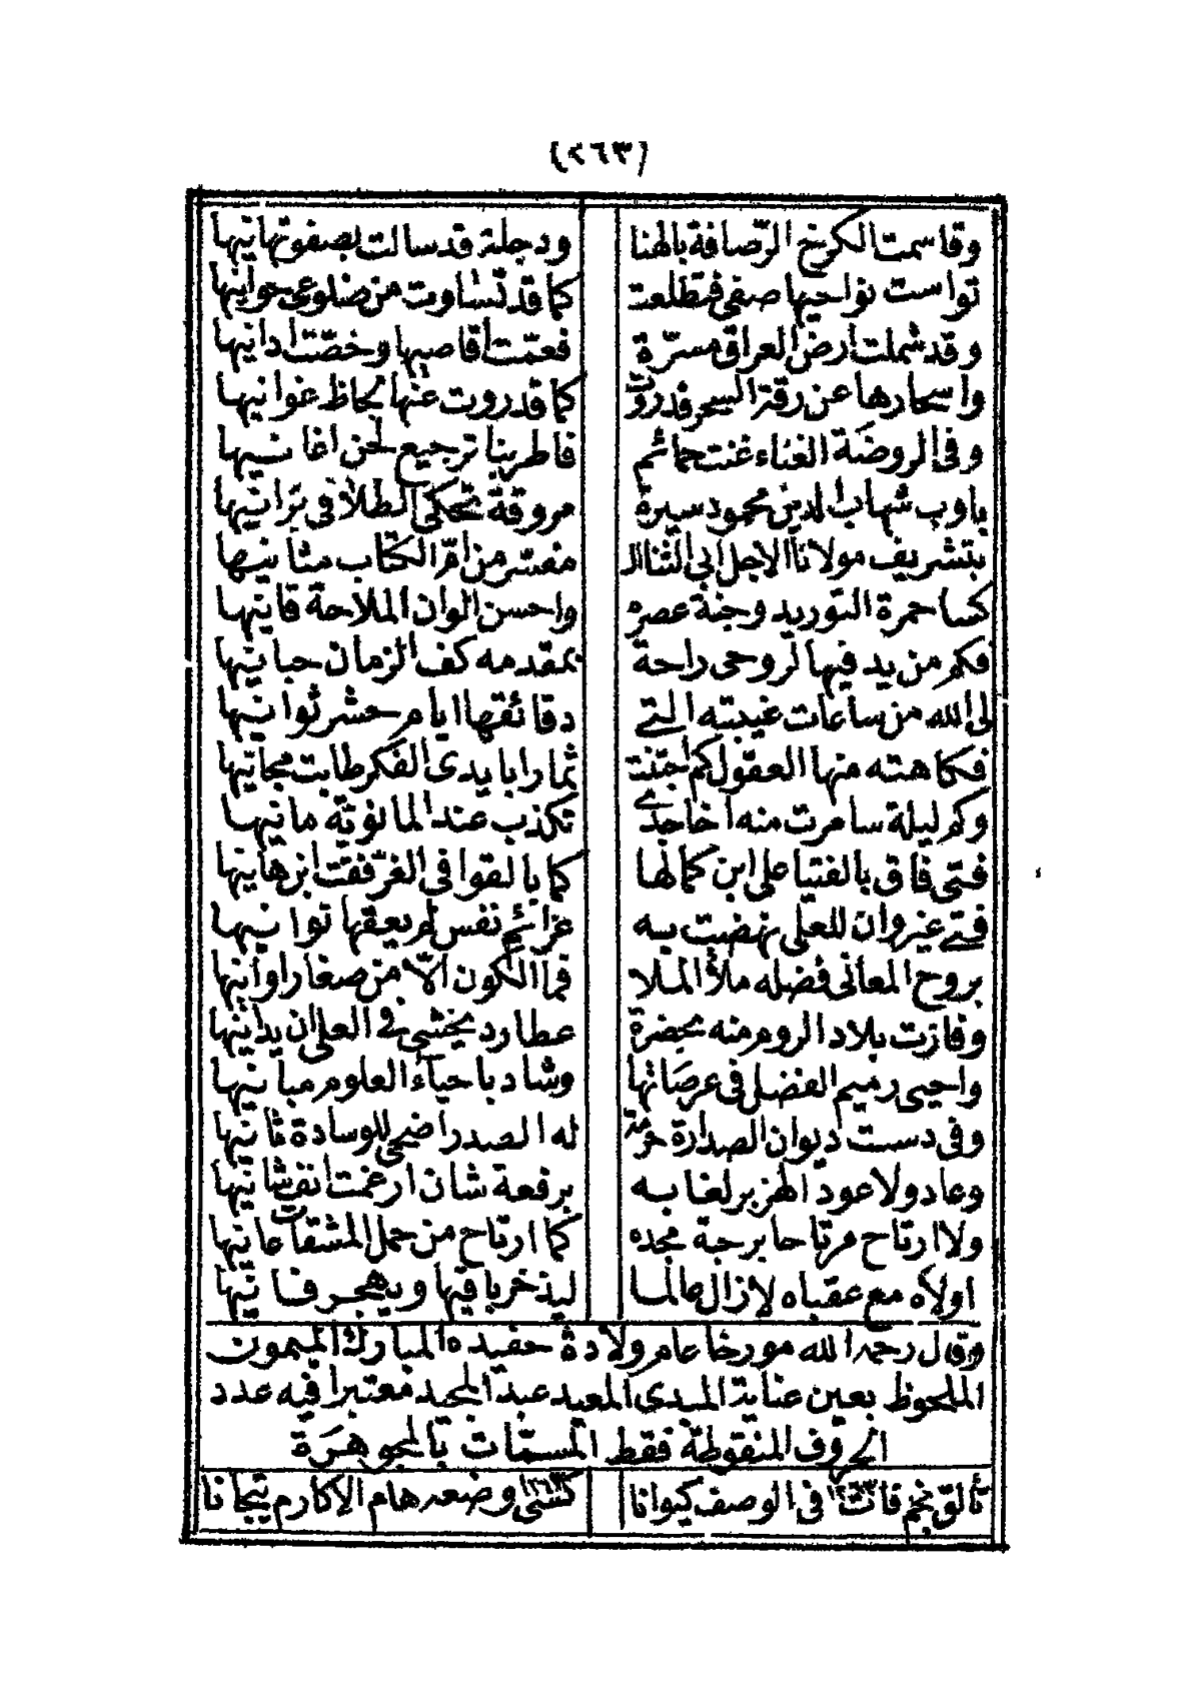 (٢٦٣)
وقاسمت الكرخ الرّصافة بالهنا ودجلة قد سالت بصفو تهانيها
تواست نواحيها صفى فتطلعت كما قد تساوت من ضلوعى حوانيها
وقد شملت ارض العراق مسرّة فعمّت أقاصيها وخصّت ادانيها
واسحارها عن رقة السحر قد روت كما قد روت عنها لحاظ غوانيها
وفى الروضة الغناء غنت حمائم فاطربنا ترجيع لحن اغانيها
باوب شهاب الدين محمود سيرة مروقة تحكى الطلا فى برانيها
بتشريف مولانا الاجل ابى الثنا الـ مفسّر من امّ الكتاب مثانيها
كسا حمرة التوريد وجنة عصره واحسن الوان الملاحة قانيها
فكم من يد فيها لروحى راحة بمقدمه كف الزمان حبانيها
لى الله من ساعات غيبته التى دقائقها ايام حشر ثوانيها
فكاهته منها العقول كم اجتنت ثمارا بايدى الفكر طابت مجانيها
وكم ليلة سامرت منه اخا جدى تكذب عند المانوية مانيها
فتى فاق بالفتيا على ابن كمالها كما بالقوافى الغرّ فقت ابن هانيها
فتى غير وان للعلى نهضت به عزائم نفس لم يعقها توانيها
بروح المعانى فضله ملأ الملا فما الكون الّا من صغار اوانيها
وفازت بلاد الروم منه بحضرة عطارد يخشى فى العلى ان يدانيها
واحيى رميم الفضل فى عرصاتها وشاد باحياء العلوم مبانيها
وفى دست ديوان الصدارة حرمة له الصدر اضحى للوسادة ثانيها
وعاد ولا عود الهزبر لغابه برفعة شان ارغمت انف شانيها
ولا ارتاح مرتاحا برحبة مجده كما ارتاح من حمل المشقات عانيها
اولاه مع عقباه لازال عالما ليذخر باقيها ويهجر فانيها
وقال رحمه الله مورخا عام ولادة حفيده المبارك الميمون
الملحوظ بعين عناية المبدى المعيد عبد المجيد معتبرا فيه عدد
الحروف المنقوطة فقط المسمّات بالمجوهرة
تألق نجم فات فى الوصف كيوانا كسى وضعه هام الاكارم تيجانا